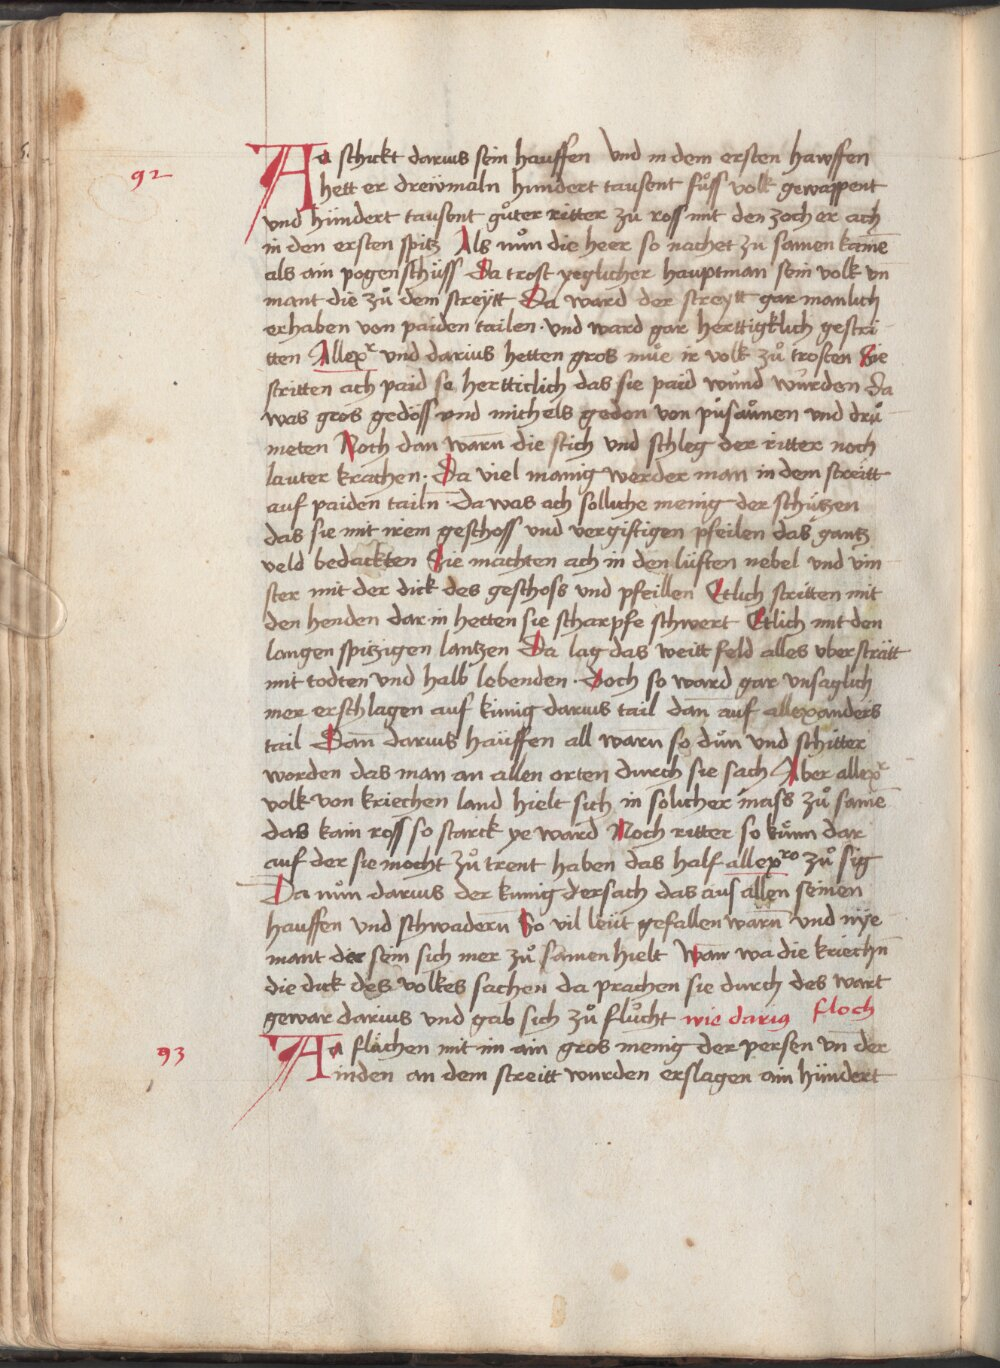 92
Aa schickt darius sein hauffen Vnd in dem ersten hawffen
hett er drewmaln hundert tausent fuͦss volk gewappent
vnd hundert tausent guͦter ritter zu ross mit den zoch er ach
in den ersten spitz Als nuͦn die heer so nachet zu samen kamē
als ain pogen schuss Da trost yeglicher hauptman sein volk vn
mant die zuͦ dem streytt Da ward der streytt gar manlich
erhaben von paiden tailen · vnd ward gar herttigklich gestri
tten Allexr vnd darius hetten gros mue ir volk zuͦ trosten Sie
stritten ach paid so hertticlich das sie paid wund wurden Da
was gros gedoss vnd michels gedon von pusaunen vnd dru
meten Noch dan warn die stich vnd schleg der ritter noch
lauter krachen · Da viel manig werder man in dem streitt
auf paiden tailn · Da was ach solliche menig der schutzen
das sie mit irem geschoss vnd vergiftigen pfeilen das gantz
veld bedackten Sie machten ach in den luften nebel vnd vin
ster mit der dick des geschoss vnd pfeillen Etlich stritten mit
den henden dar in hetten sie scharpfe schwert Etlich mit den
langen spitzigen lantzen Da lag das weitt feld alles vbersträtt
mit todten vnd halb lebenden · Doch so ward gar vnsaglich
mer erschlagen auf kunig darius tail dan auf allexanders
tail Dan̄ darius hauffen all warn so dun vnd schitter
worden das man an allen orten durch sie sach Aber allexr
volk von kriechen land hielt sich in solicher mass zuͦ samē
das kain ross so starck ye ward Noch ritter so kuͤnn dar
auf der sie mocht zuͦ trent haben das half allexro zuͦ sig
Da nuͦn darius der kunig dersach das aus allen seinen
hauffen vnd schwadern So vil leut gefallen warn vnd nye
mant der sein sich mer zuͦ samen hielt Wan wa die kriechn̄
die dick des volkes sachen da prachen sie durch des wart
gewar darius vnd gab sich zuͦ flucht wie darius floch
93
Aa flachen mit im ain gros menig der persen vn̄ der
inden an dem streitt wurden erslagen ain hundert